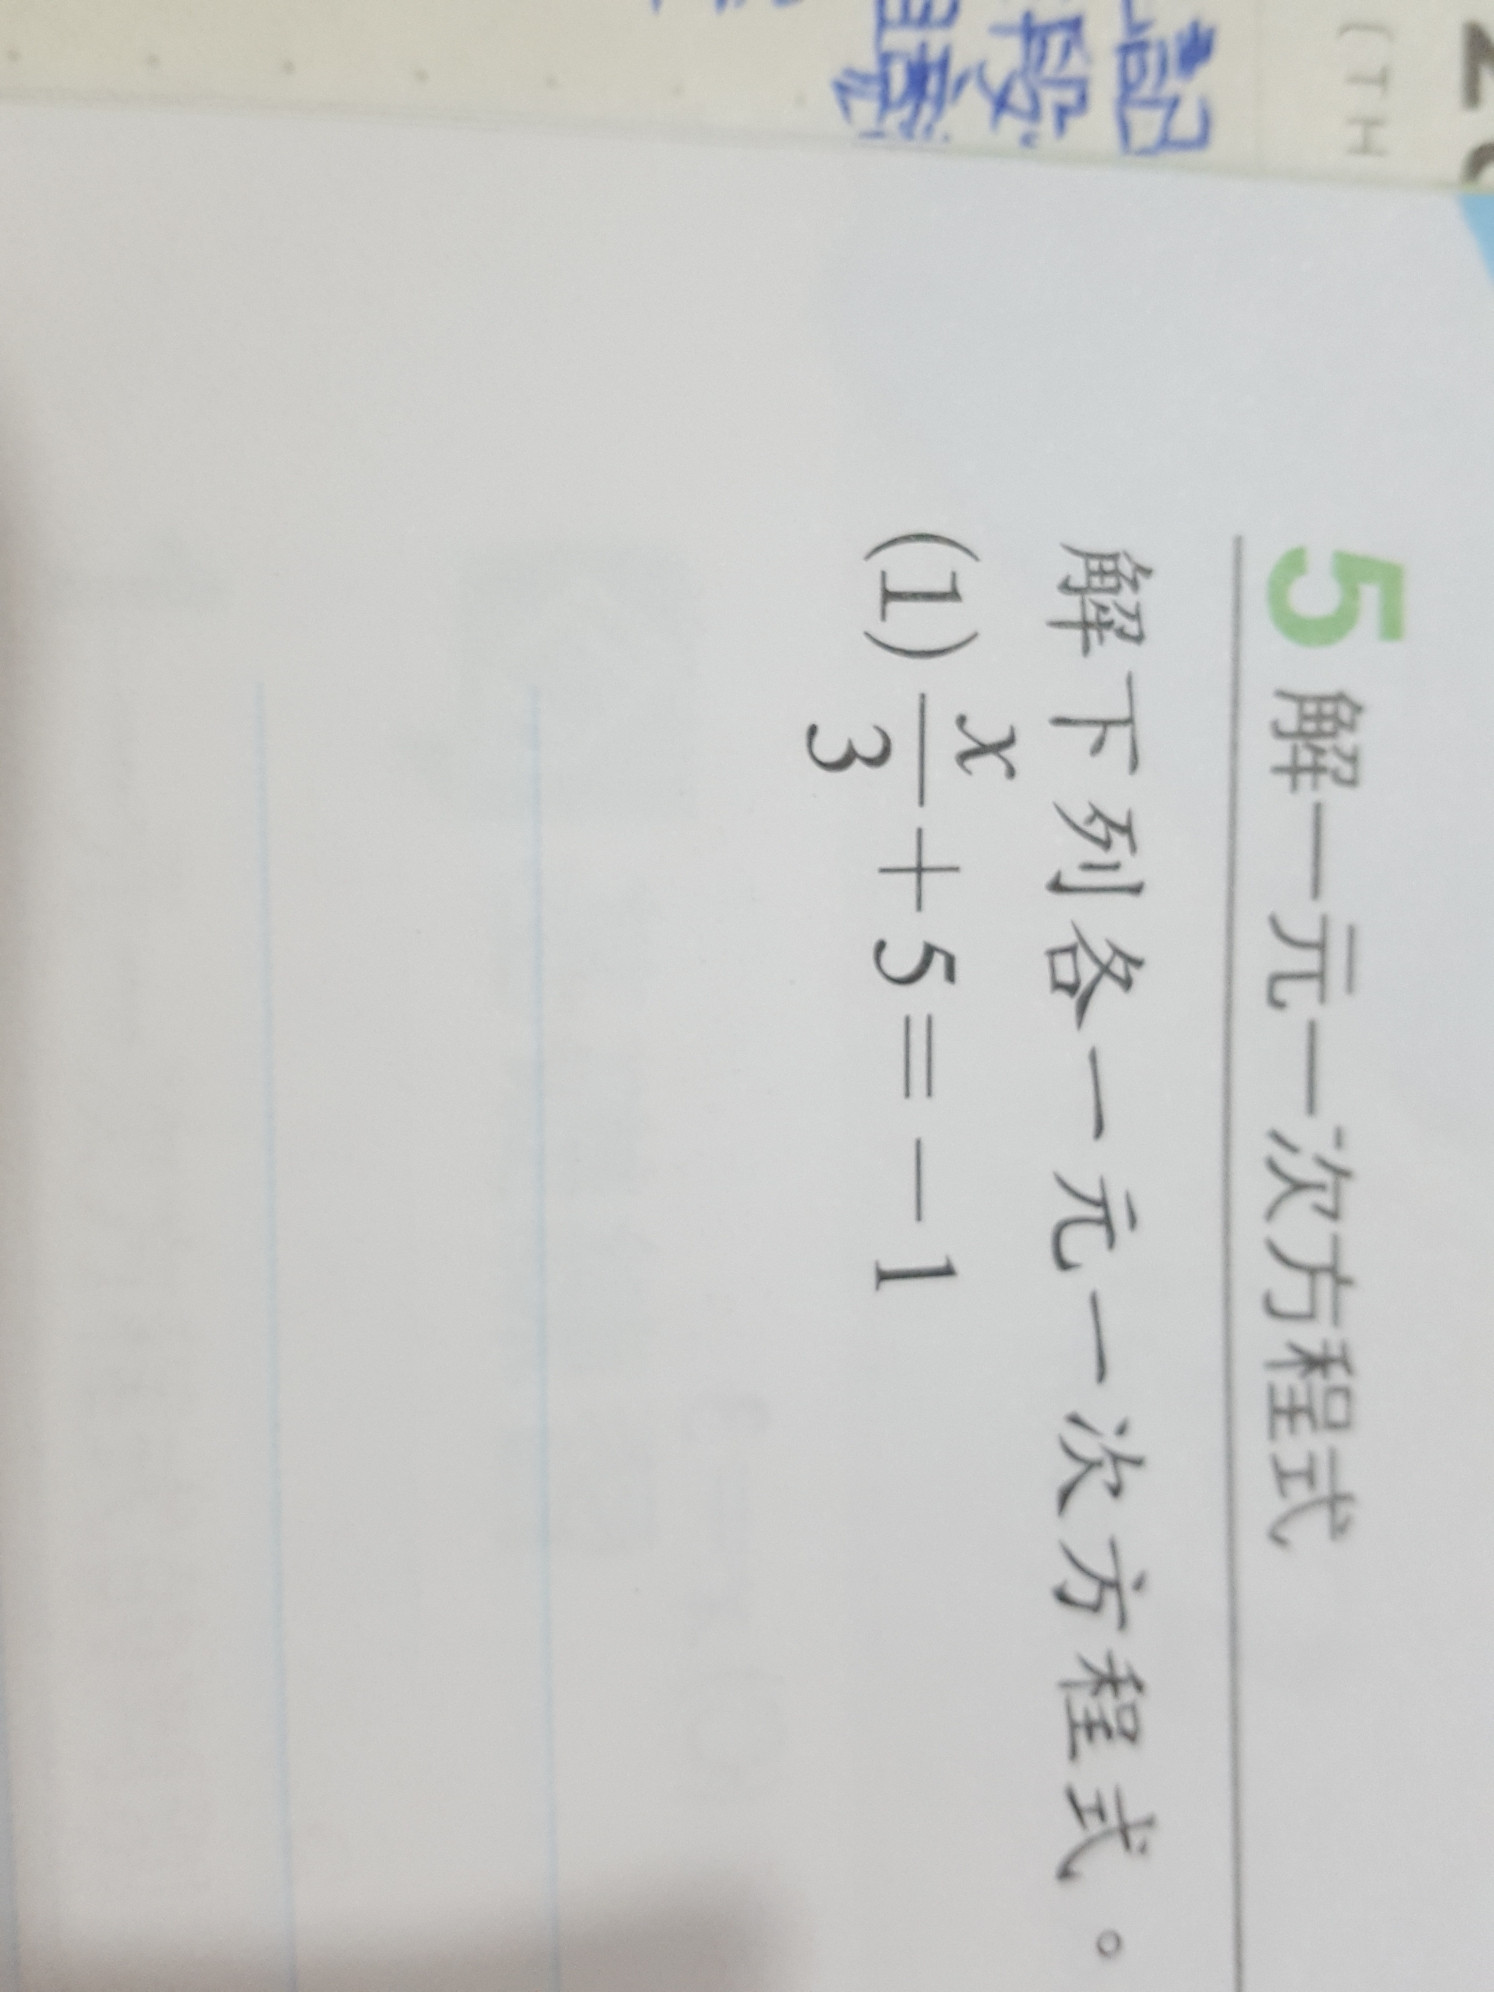 (TH
記
段
5 解一元一次方程式
解下列各一元一次方程式。
(1) x/3 + 5 = -1